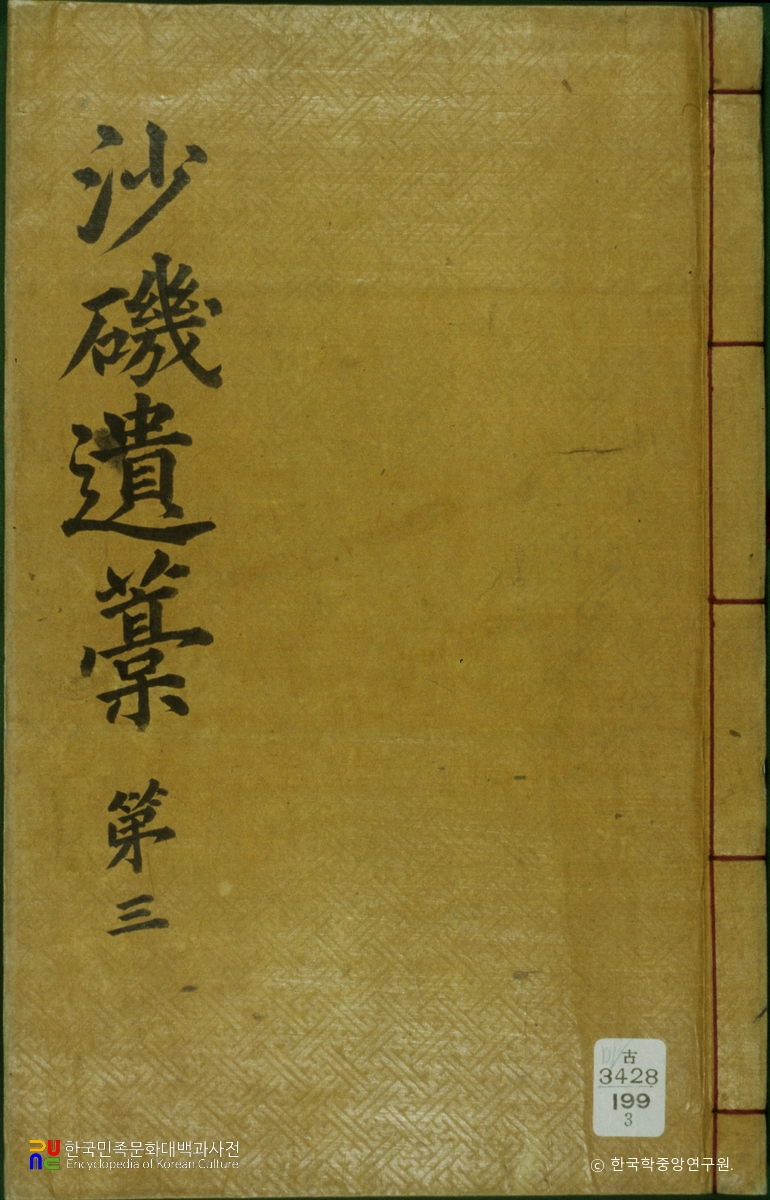 沙磯遺藁 第三
古
3428
199
3
한국민족문화대백과사전
Encyclopedia of Korean Culture
© 한국학중앙연구원.